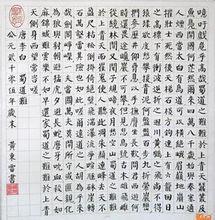 噫吁戲危乎高哉蜀道之難難於上青天蠶叢及
魚鳧開國何茫然爾來四萬八千歲始與秦塞通
人煙西當太白有鳥道可以橫絕峨眉巔地崩山
摧壯士死然後天梯石棧方鉤連上有六龍回日
之高標下有衝波逆折之回川黃鶴之飛尚不得
過猿猱欲度愁攀緣青泥何盤盤百步九折縈巖巒
捫參歷井仰脅息以手撫膺坐長歎問君西遊何
時還畏途巉巖不可攀但見悲鳥號古木雄飛
雌從繞林間又聞子規啼夜月愁空山蜀道之難難
於上青天使人聽此凋朱顏連峰去天不
盈尺枯松倒挂倚絕壁飛湍瀑流爭喧豗砯崖轉
石萬壑雷其險也如此嗟爾遠道之人胡為乎來
哉劍閣崢嶸而崔嵬一夫當關萬夫莫開所守或匪
親化為狼與豺朝避猛虎夕避長蛇磨牙吮血殺人
如麻錦城雖云樂不如早還家蜀道之難難於上青
天側身西望常咨嗟
唐李白 蜀道難
年歲末 黃東雷書